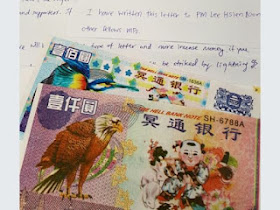 and supporters. I have written this letter to PM Lee Hsien
other fellow MPs
type of letter and more incense money if you
be struck by lightning &
壹佰圓
通银行
壹仟圓
HELL BANK NOTE SH-6788A
冥通银行